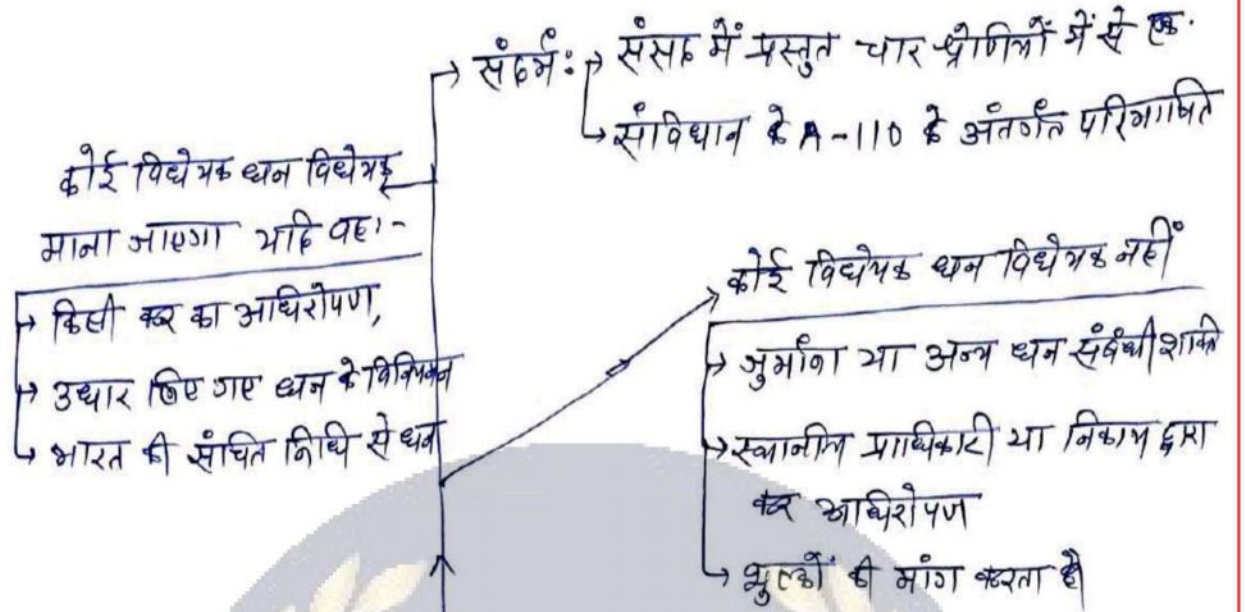 संदर्भ: → संसद में प्रस्तुत चार श्रेणियों में से एक.
→ संविधान के A-110 के अंतर्गत परिभाषित
कोई विधेयक धन विधेयक
माना जाएगा यदि वह:-
→ किसी कर का अधिरोपण,
→ उधार लिए गए धन के विनियमन
→ भारत की संचित निधि से धन
कोई विधेयक धन विधेयक नहीं
→ जुर्माना या अन्य धन संबंधी शक्ति
→ स्थानीय प्राधिकारी या निकाय द्वारा
कर अधिरोपण
→ शुल्कों की मांग करता है